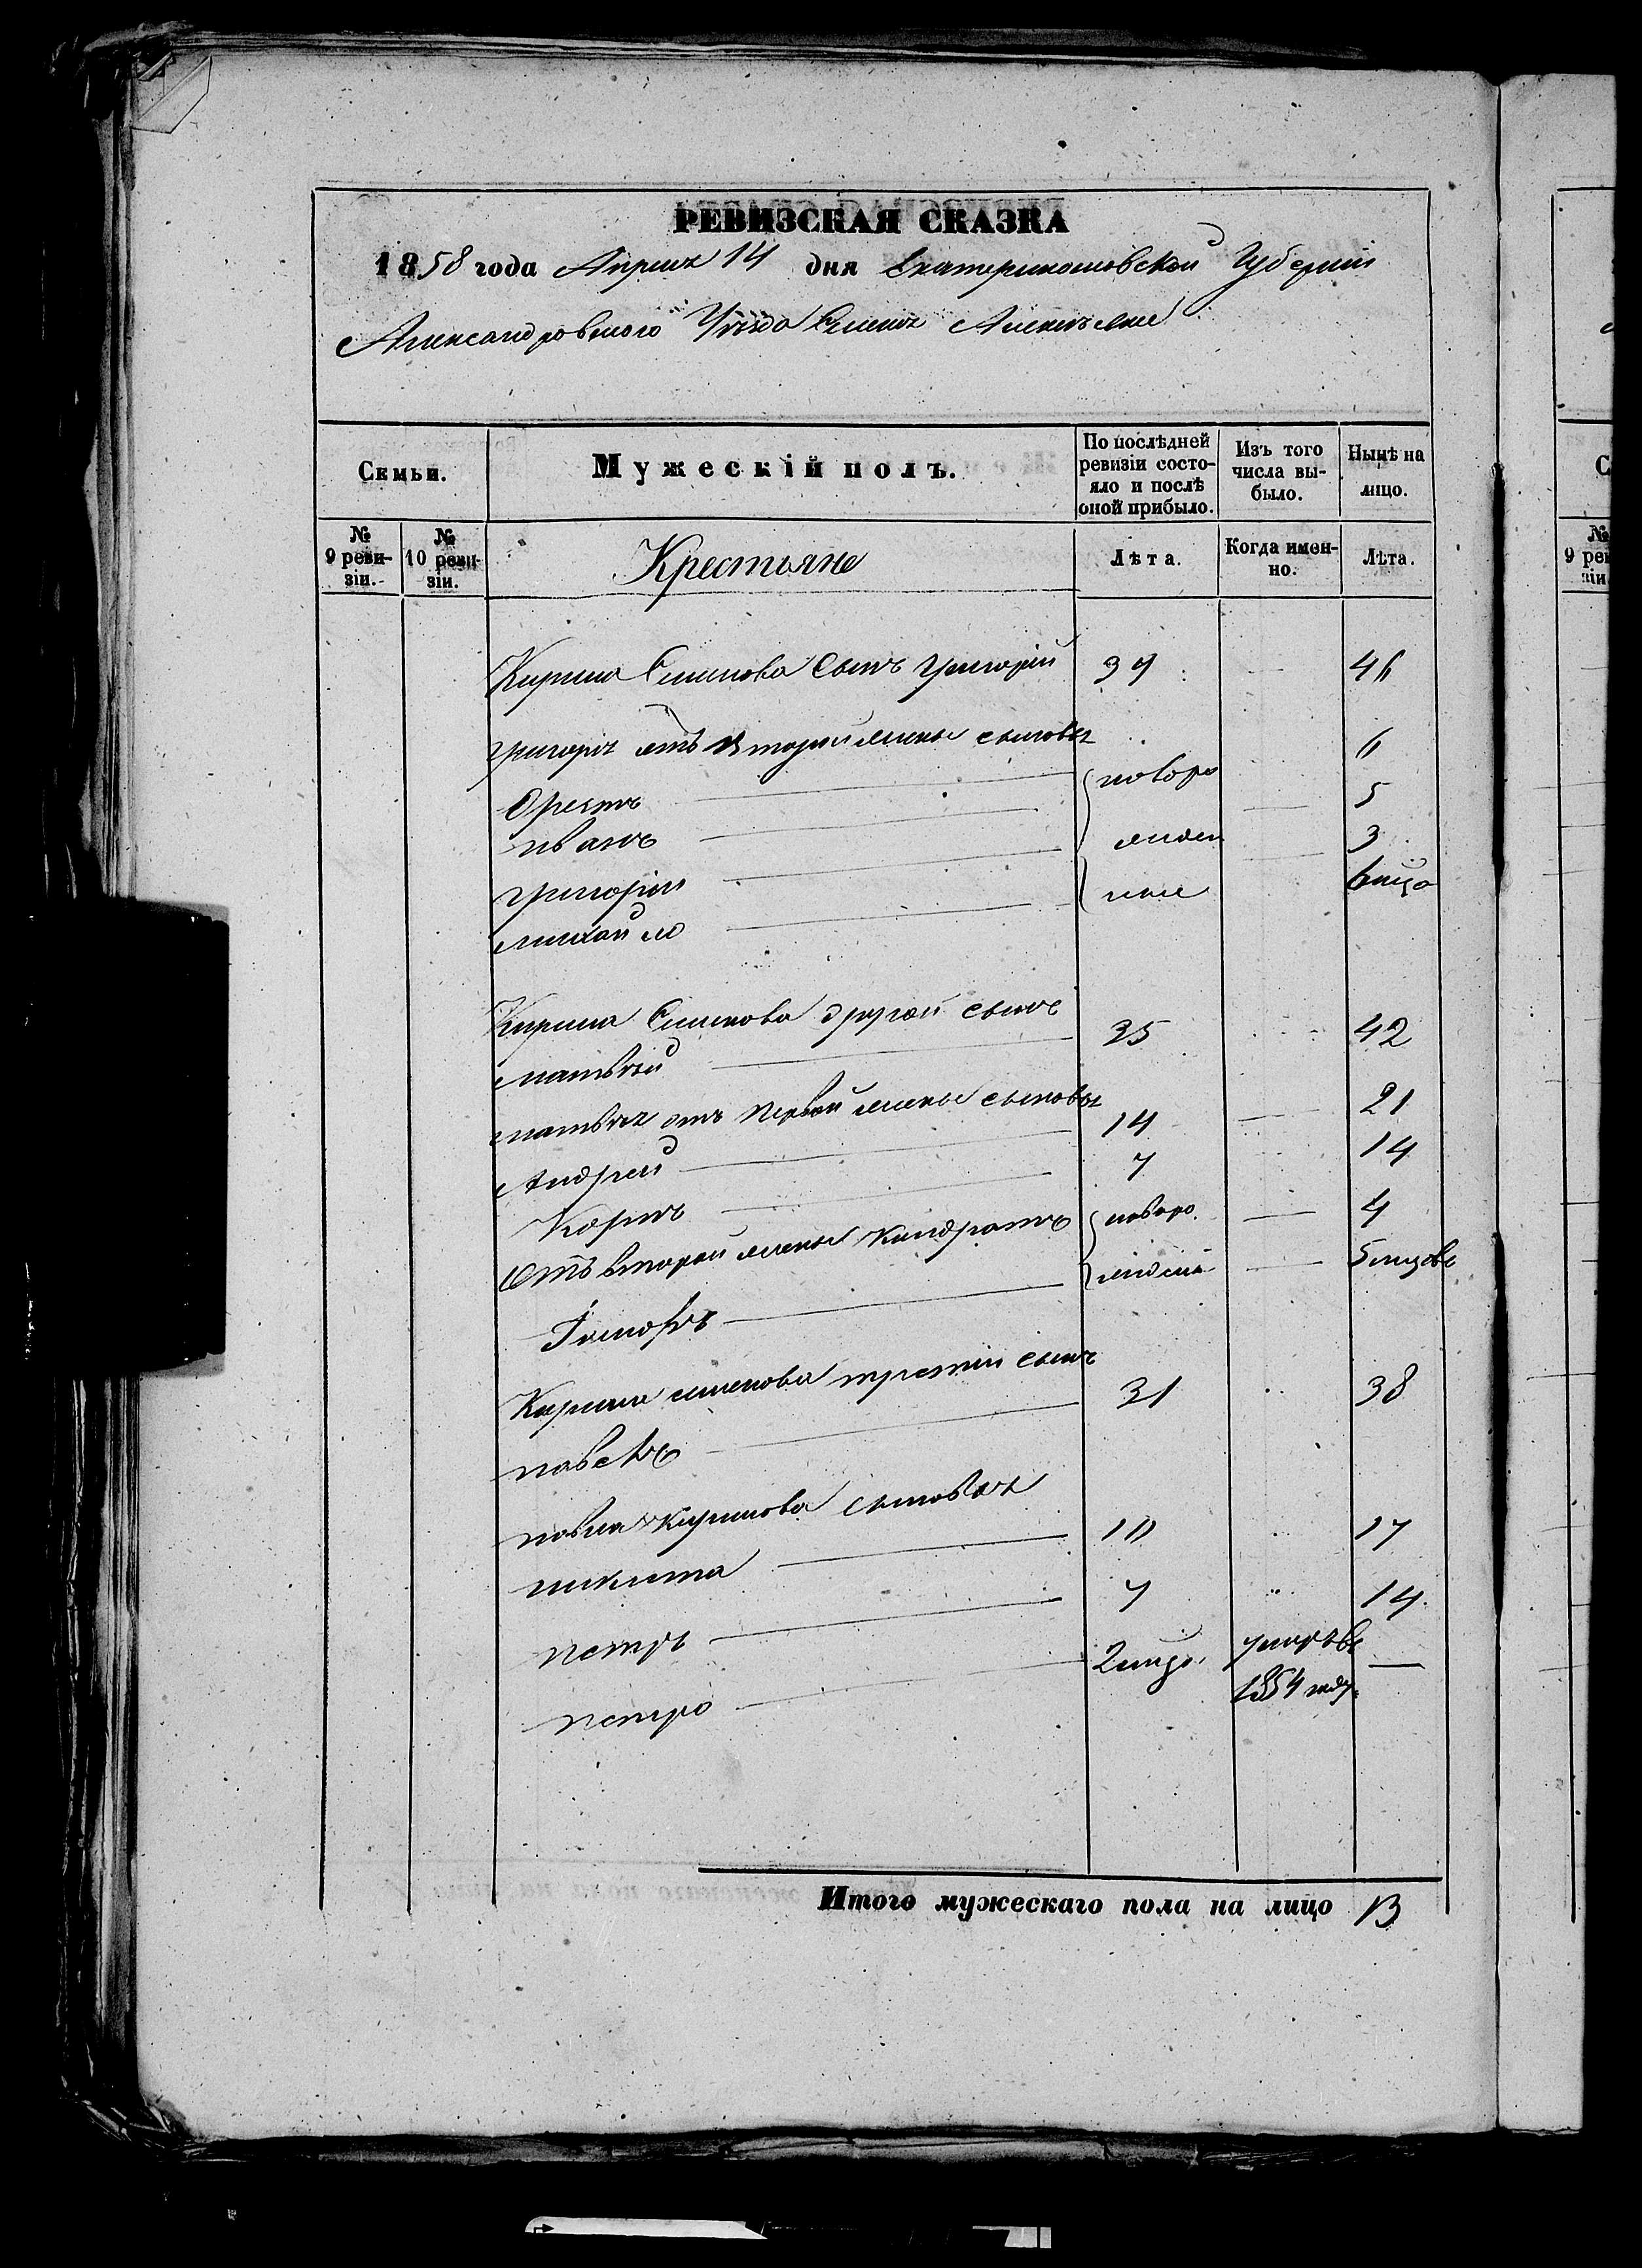 РЕВИЗСКАЯ СКАЗКА
1858 года Апреля 14 дня Екатеринославской Губернии
Александровского Уѣзда Селения Алексѣевки
Семьи.
Мужескій полъ.
По послѣдней ревизіи состояло и послѣ оной прибыло.
Изъ того числа выбыло.
Нынѣ на лицо.
№ 9 ревизіи.
№ 10 ревизіи.
Крестьяне
Лѣта.
Когда именно.
Лѣта.
Кирила Семенова Сынъ григорій 39 46
григорія отъ Второй жены сыновья
Орестъ новоро 6
иванъ 5
григорій жден 3
михайло ные 6 мѣся
Кирила Семенова другой сынъ
матвѣй 35 42
матвѣя отъ первой жены сыновья
Андрей 14 21
Карпъ 7 14
Отъ второй жены Кондратъ новоро 4
жденій 5 мѣсяцовъ
Кирила семенова третій сынъ
павелъ 31 38
павла Кирилова сыновья
никита 10 17
петръ 7 14
петро 2 мѣся. умеръ въ —
1854 году
Итого мужескаго пола на лицо 13
С
№
9 рев
зіи